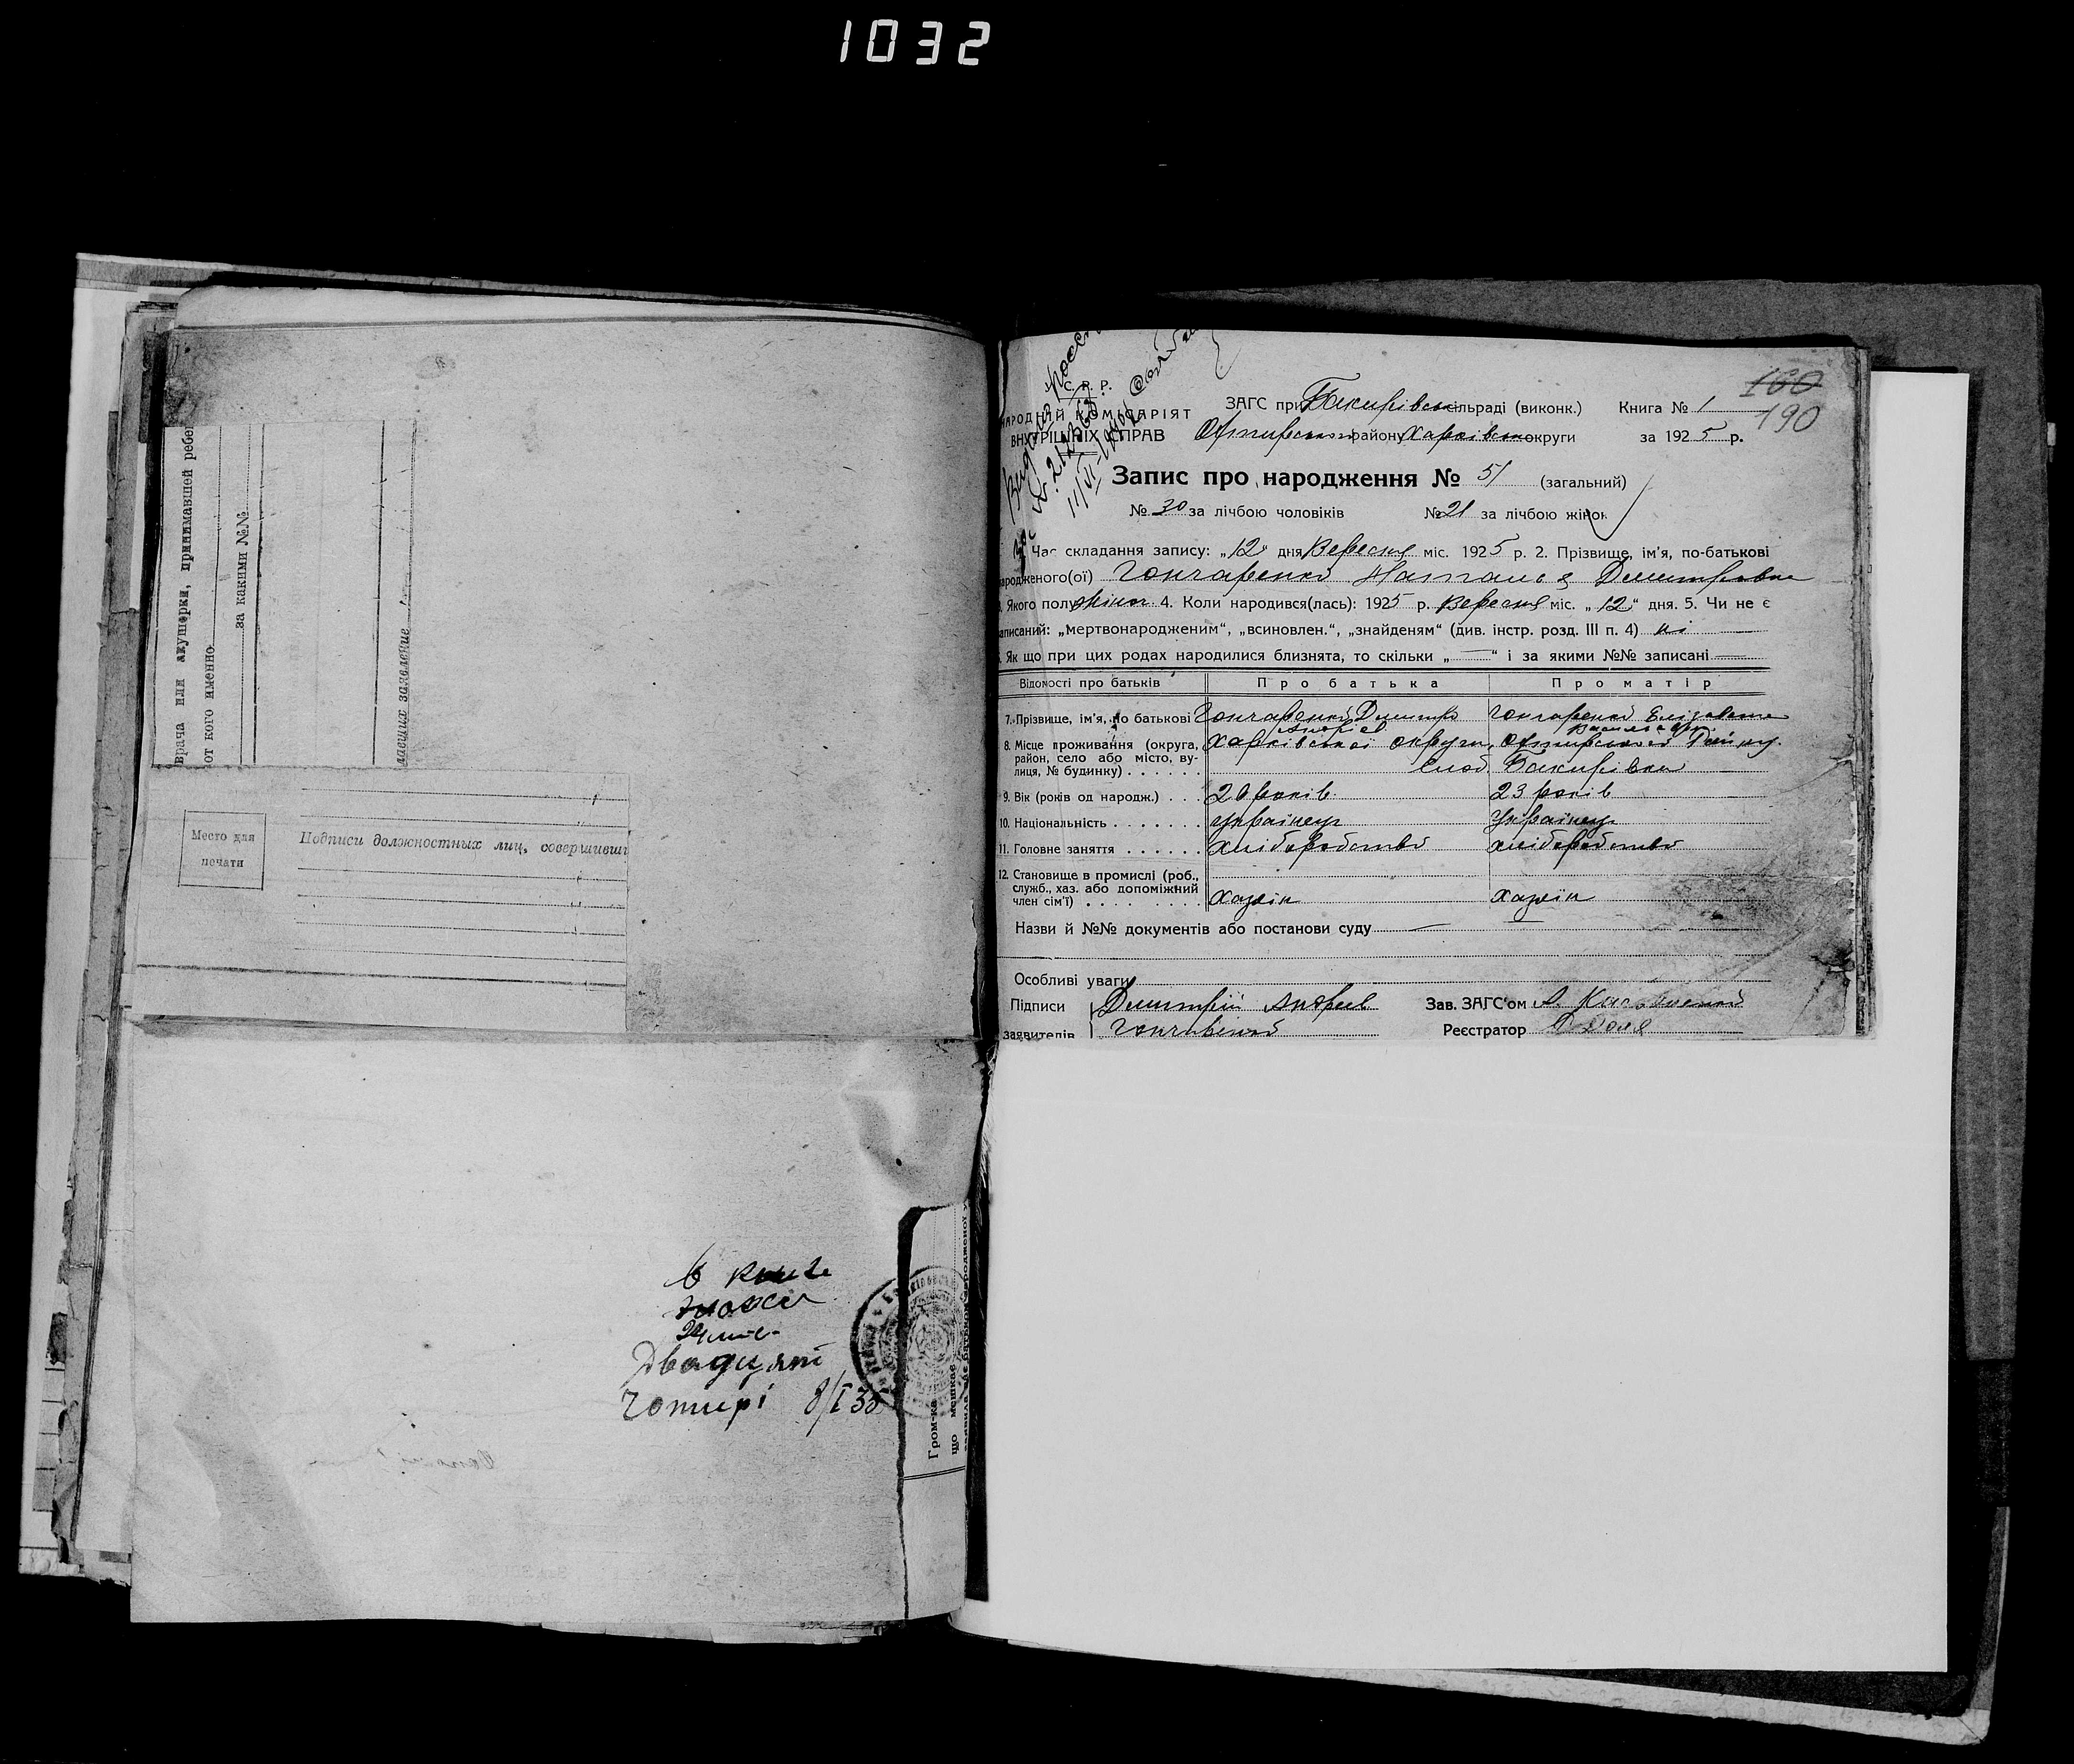 1032
врача или акушерки, принимавшей ребен
от кого именно
за какими №№
Место для
печати
Подписи должностных лиц, совершивши
В книге
24
Двадцят
Чотирі 8/I 35
Гром-ка
що мешкає
С. Р. Р.
НАРОДНИЙ КОМІСАРІЯТ
ВНУТРІШНІХ СПРАВ
ЗАГС при Бакирівськ сільраді (виконк.) Книга № 1
160
190
Охтирського району Харківсько округи за 1925 р.
Запис про народження № 51 (загальний)
№ 30 за лічбою чоловіків № 21 за лічбою жінок
Час складання запису: „12“ дня Вересня міс. 1925 р. 2. Прізвище, ім'я, по-батькові
народженого(ої) Гончаренко Наталія Дмитровна
Якого полу жіноч. 4. Коли народився(лась): 1925 р. Вересня міс. „12“ дня. 5. Чи не є
записаний: „мертвонародженим“, „всиновлен.“, „знайденям“ (див. інстр. розд. III п. 4) ні
Як що при цих родах народилися близнята, то скільки „—“ і за якими №№ записані —
Відомості про батьків Про батька Про матір
7. Прізвище, ім'я, по батькові Гончаренко Дмитро Андрієв Гончаренко Єлізавета Васильевна
8. Місце проживання (округа, Харківської округи, Охтирського Району.
район, село або місто, ву- Слоб. Бакирівка
лиця, № будинку)
9. Вік (років од народж.) 26 років 23 років
10. Національність українец українец
11. Головне заняття хліборобство хліборобство
12. Становище в промислі (роб.,
служб., хаз. або допоміжний
член сім'ї) хазяїн хазяїн
Назви й №№ документів або постанови суду —
Особливі уваги
Підписи Дмитрий Андреев Зав. ЗАГС'ом А.
заявителів Гончаренко Реєстратор Доля